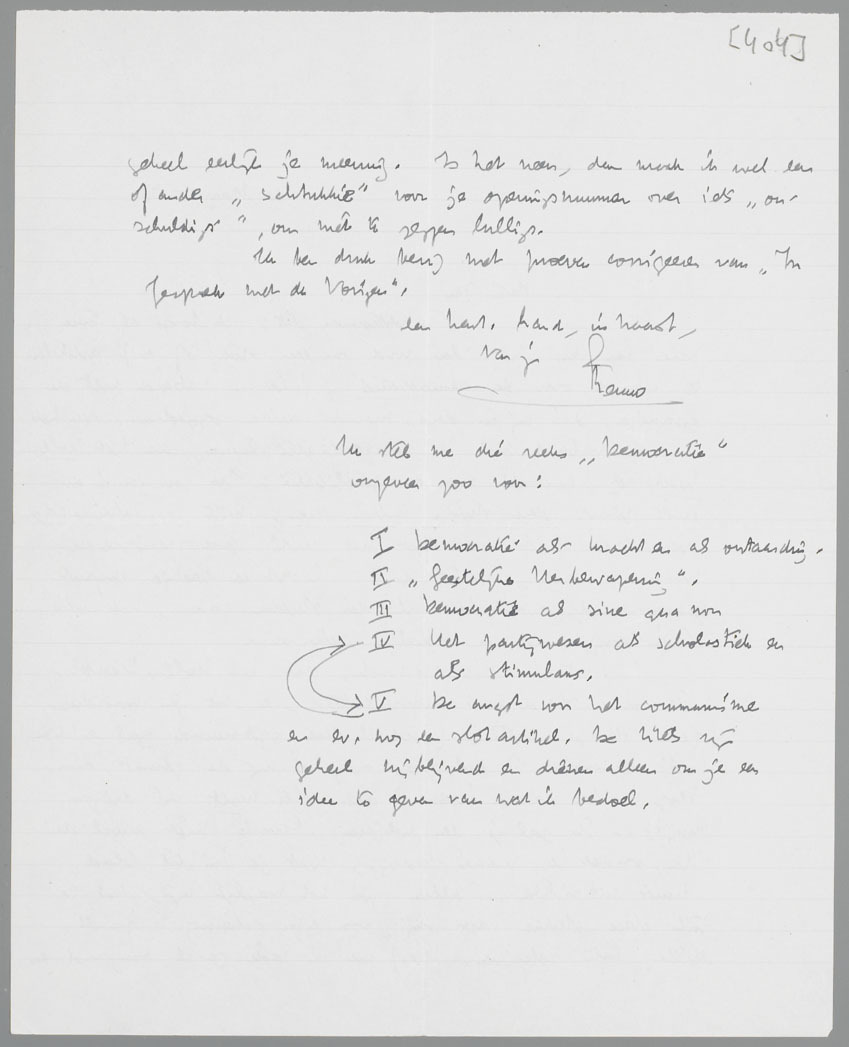 [404]
geheel eerlijk je meening. Is het neen, dan maak ik wel een
of ander „ schtukkie" voor je openingsnummer over iets „on-
schuldigs", om niet te zeggen lulligs.
Ik ben druk bezig met proeven corrigeeren van „In
Gesprek met de Vorigen".
een hart. hand, in haast,
van je
Menno
Ik stel me die reeks „Democratie"
ongeveer zoo voor:
I Democratie als macht en als ontaarding.
II „Geestelijke Herbewapening".
III Democratie als sine qua non
IV Het partijwezen als scholastiek en
als stimulans.
V De angst voor het communisme
en ev. nog een slotartikel. De titels zijn
geheel vrijblijvend en dienen alleen om je een
idee te geven van wat ik bedoel.